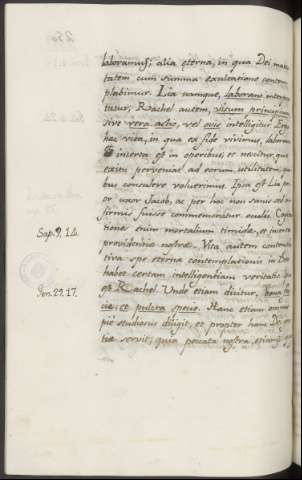 laboramus; alia eterna, in qua Dei maies
tatem cum summa exultatione contem
plabimur. Lia namque, laborans interpre
tatur, Rachel autem, visum principium
sive vera actio, vel ovis intelligitur. Ergo
hac vita, in qua ex fide vivimus, laborum
incerta est in operibus, et nescitur, quo
exitu perveniat ad eorum utilitatem, qui
bus consulere volverimus. Ipsa est Lia pr
or uxor Jacob, ac per hoc non sanis ocul
firmis fuisse commemoratur oculis. Cogita
tiones enim mortalium timida, et incerta
Sap. 9, 14.
providentia nostra. Vita autem contem
tiva spe eterna contemplationis in Deo
habet certam intelligentiam veritatis
Gen. 29. 17.
est Rachel. Unde etiam dicitur, bona fa
cie, et pulcra specie. Hanc etiam omnis
pie studiosus diligit, et propter hanc Dei
tia servit, qua peccata nostra, etiamsi